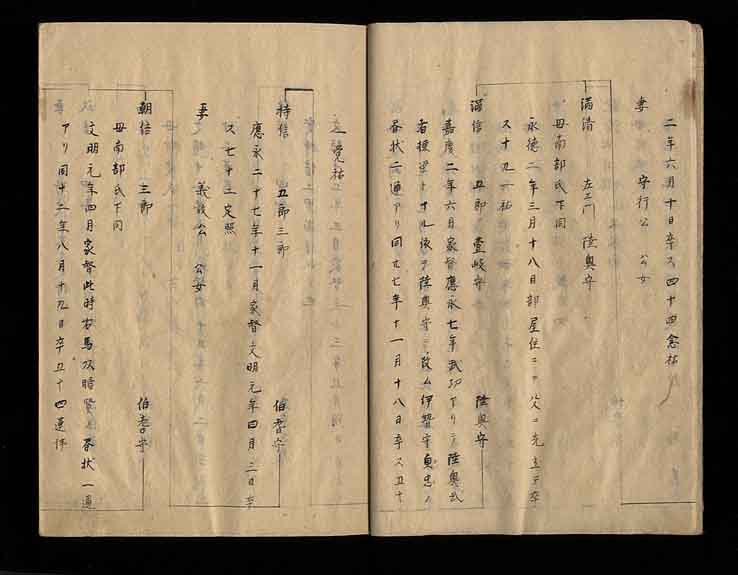 二年六月十日卒ス四十四念祐
妻 守行公 公女
満清 左エ門 陸奥守
母南部氏下同
永徳二年三月十八日部屋住ニテ父ニ先立テ卒
ス十九 祐
満信 五郎 壹岐守 陸奥守
嘉慶二年六月家督應永七年武功アリテ陸奥武
者探望トナル依テ陸奥守ニ改ム伊勢守貞忠ノ
書状二通アリ同廿七年十一月十八日卒ス五十
持信 五郎三郎 伯耆守
應永二十七年十一月家督文明元年四月三日卒
ス七十三定照
妻 義政公 公女
朝信 三郎 伯耆守
母南部氏下同
文明元年四月家督此時右馬頭時賢ノ書状一通
アリ同十二年八月十九日卒五十四